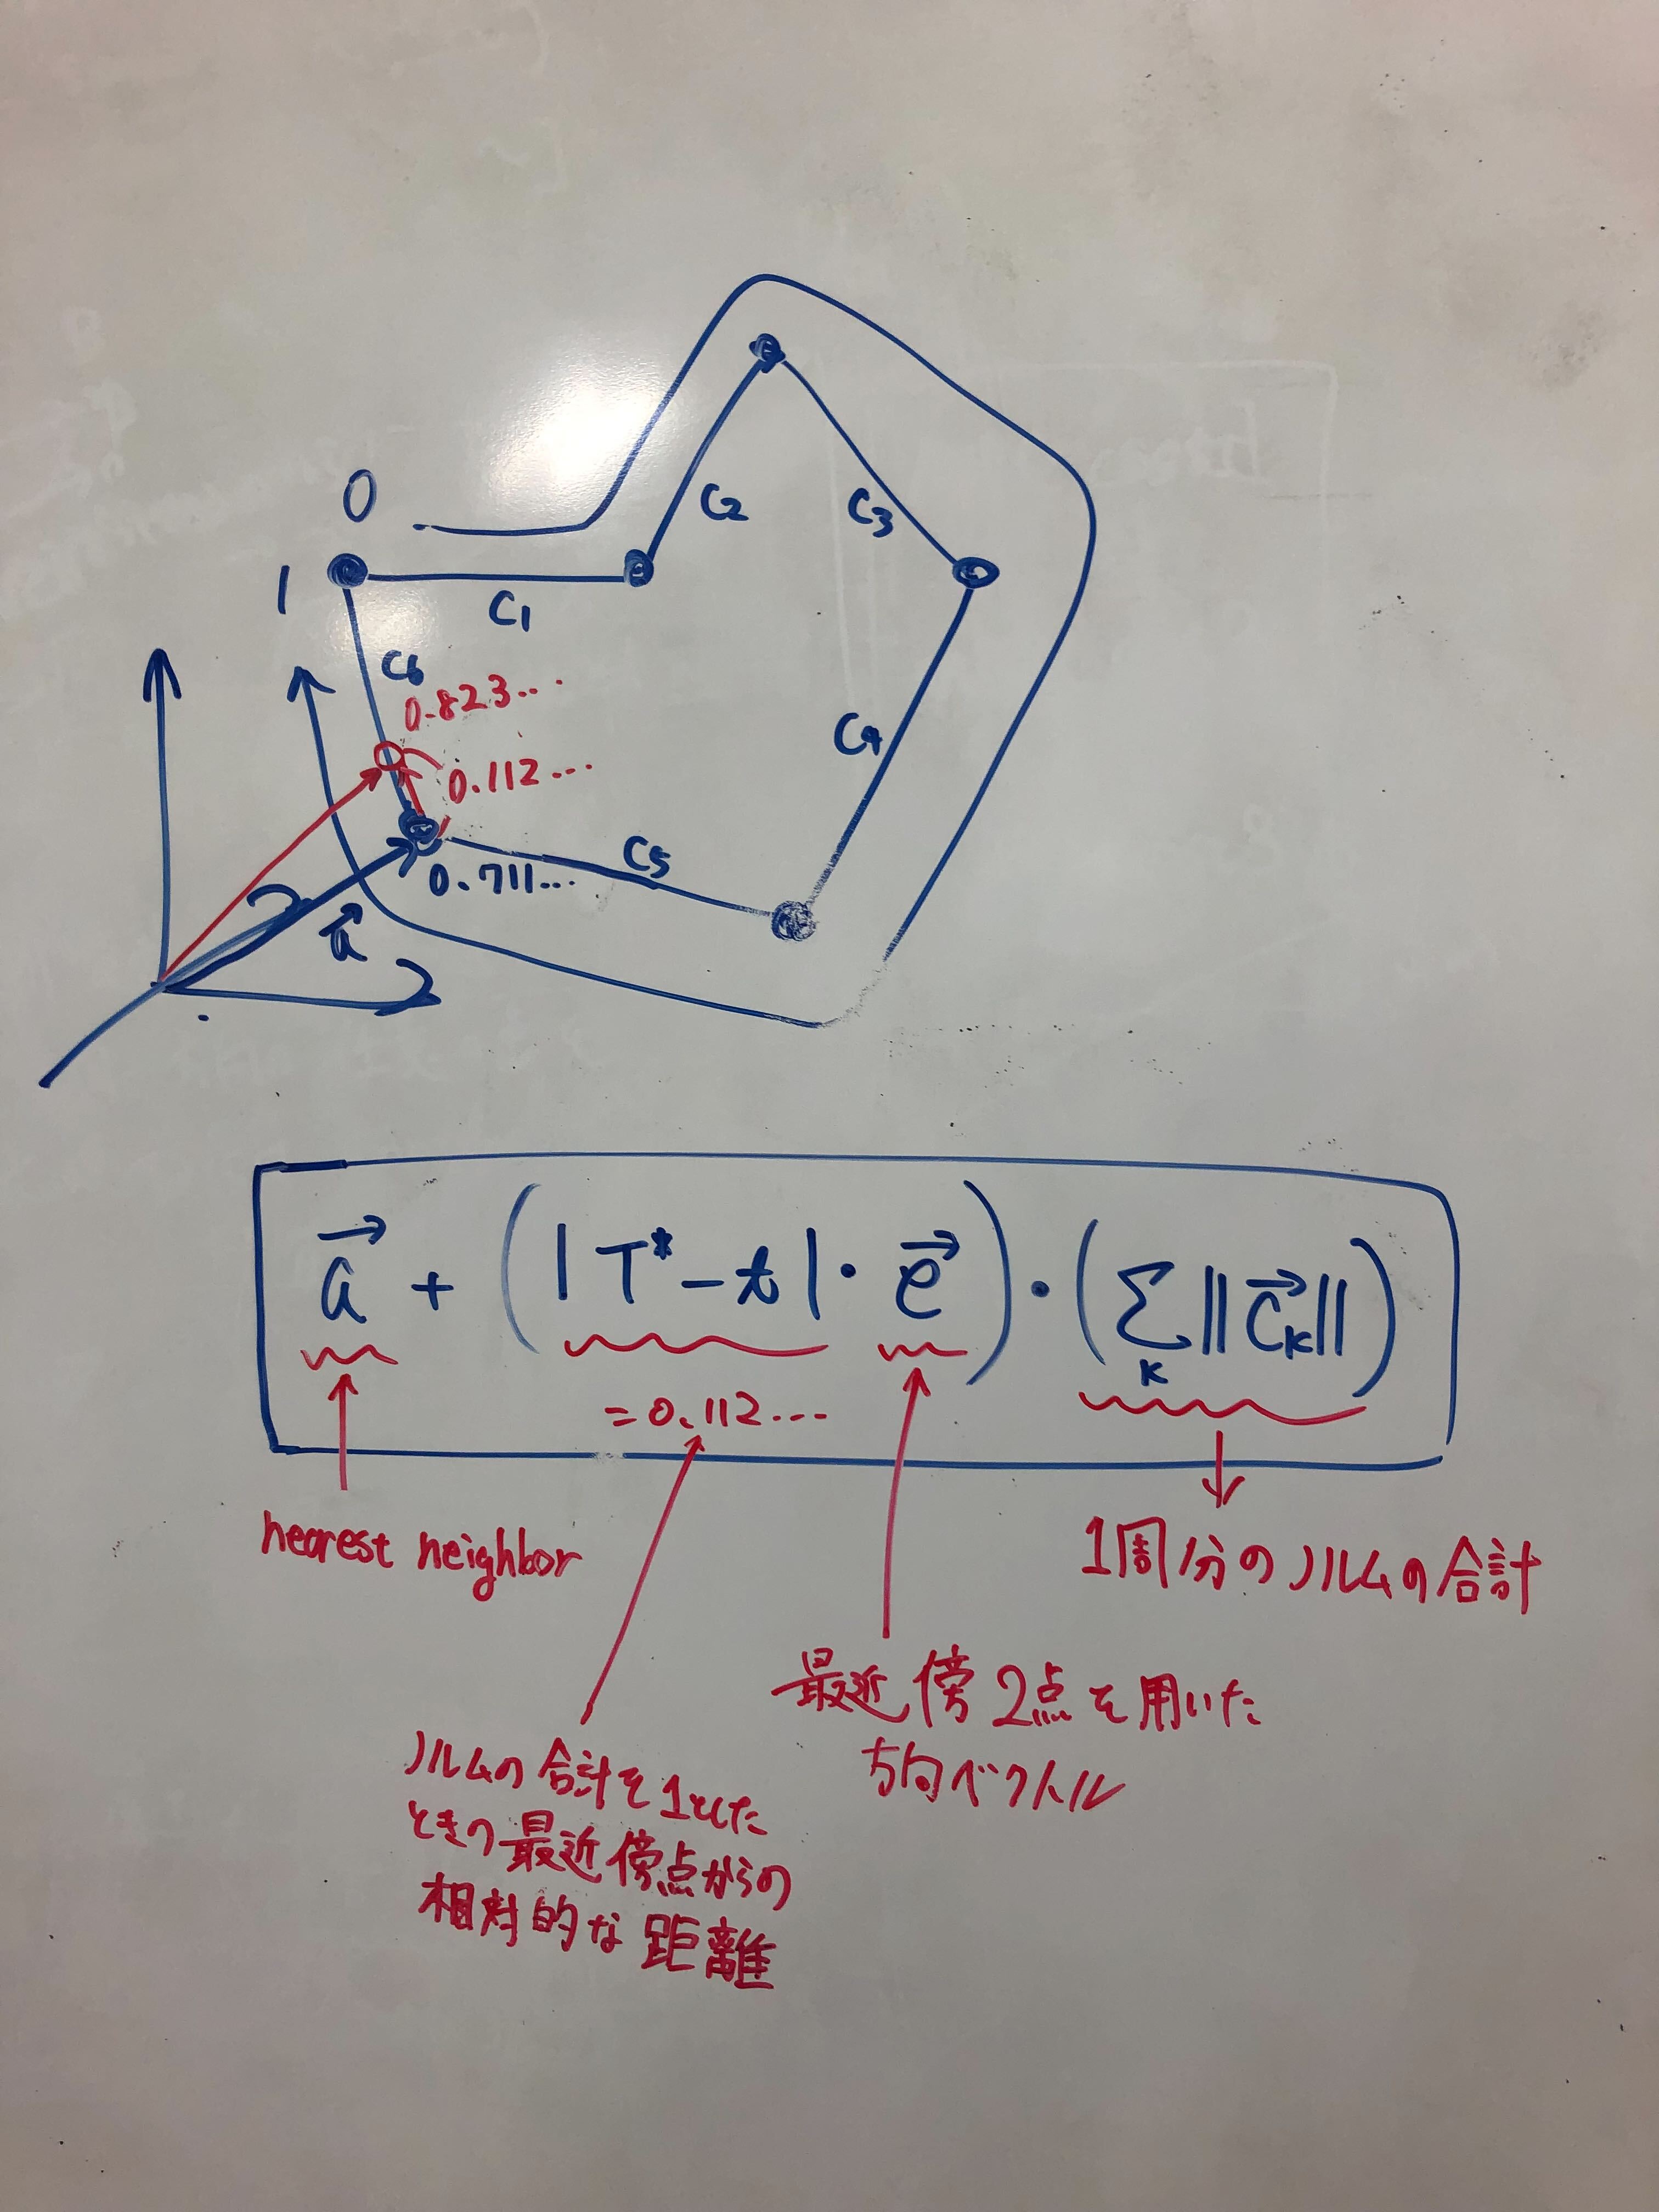 0
1
C1
C2
C3
C4
C5
C6
0.823...
0.112...
0.711...
a⃗
a⃗ + (|T*-t|・e⃗)・(Σ‖c⃗k‖)
k
=0.112...
nearest neighbor
1周分のノルムの合計
最近傍2点を用いた
方向ベクトル
ノルムの合計を1とした
ときの最近傍点からの
相対的な距離